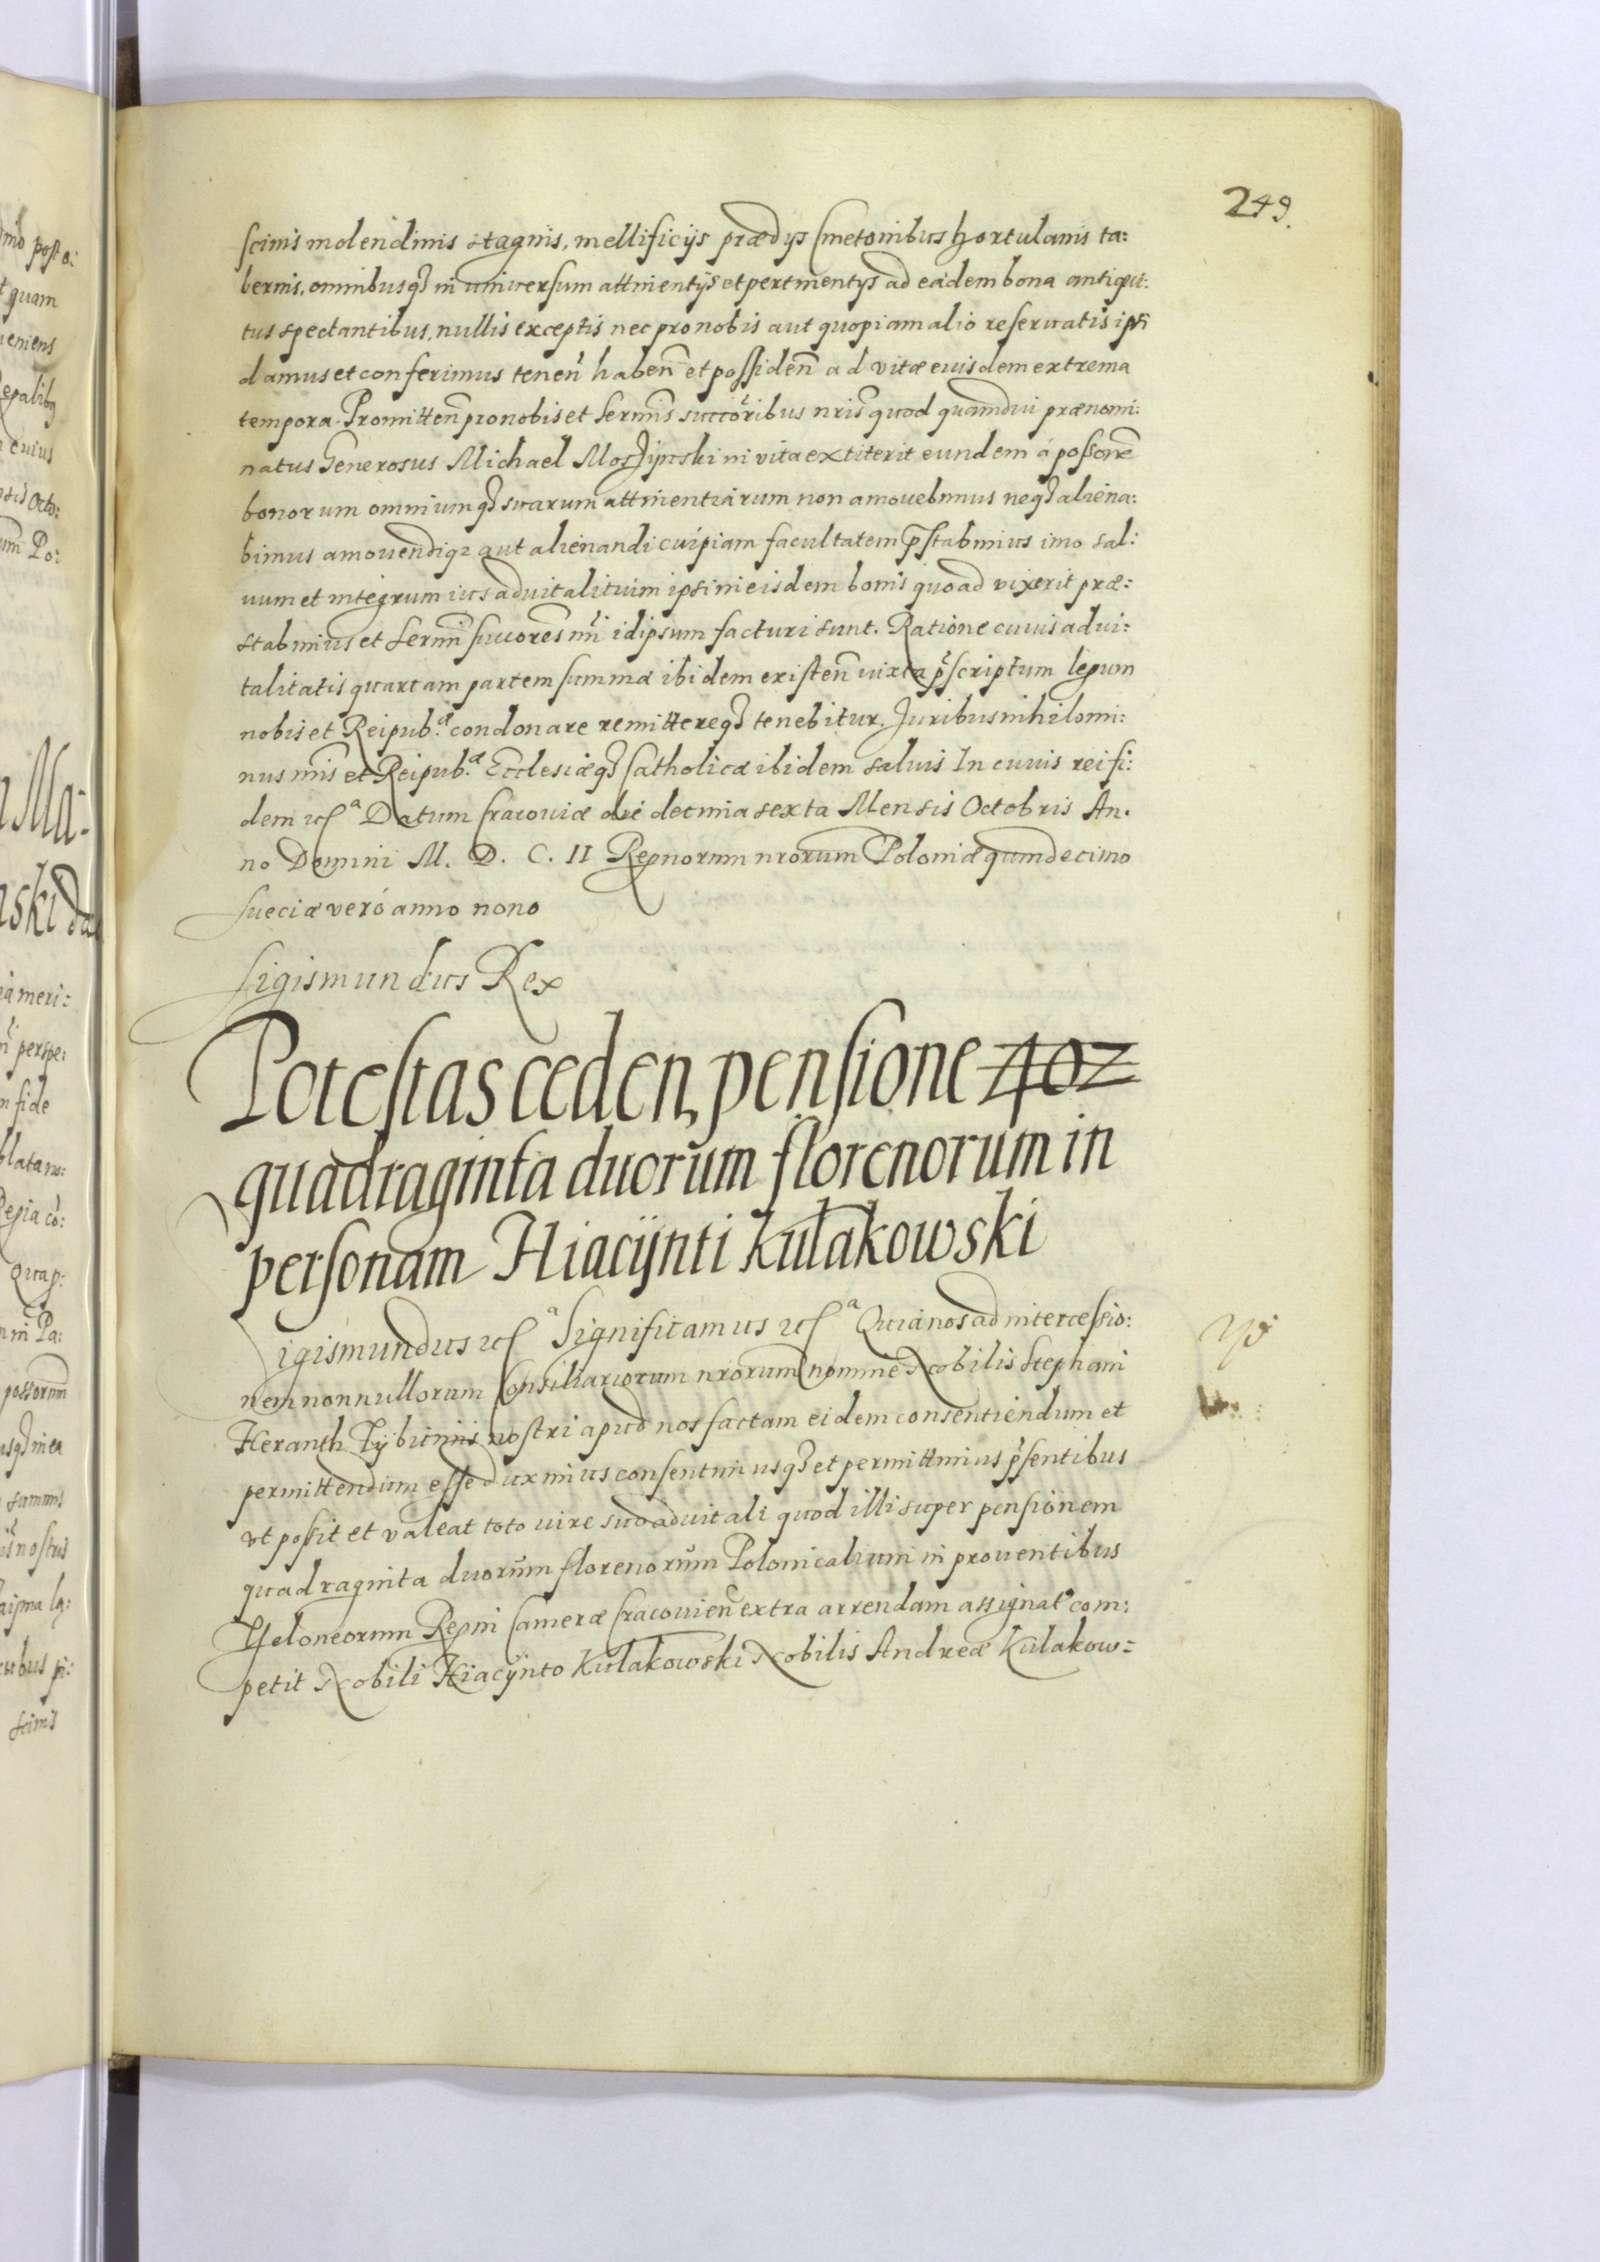 249.
scinis molendinis stagnis, mellificijs prædijs Cmetonibus Hortulanis ta:
bernis, omnibusqȝ in universum attinentijs et pertinentijs ad eadem bona antiqui:
tus spectantibus, nullis exceptis nec pro nobis aut quopiam alio reservatis ipsi
damus et conferimus tenen̄ haben̄ et possiden̄ ad vitæ eiusdem extrema
tempora. Promitten̄ pro nobis et Sermis̄ succoribus nris̄ quod quamdiu prænomi:
natus Generosus Michael in vita extiterit eundem á possone
bonorum omniumqȝ suarum attinentiarum non amovebimus neqȝ aliena:
bimus amovendiqȝ aut alienandi cuipiam facultatem p̄stabimus imo sal:
vum et integrum ius advitalitium ipsi in eisdem bonis quoad vixerit præ:
stabimus et Sermī succores nri idipsum facturi sunt. Ratione cuius advi:
talitatis quartam partem summæ ibidem existen̄ iuxta p̄scriptum legum
nobis et Reipub.æ condonare remittereqȝ tenebitur. Juribus nihilomi:
nus nris̄ et Reipub.æ Ecclesiæqȝ Catholicæ ibidem salvis In cuius rei fi:
dem etc̄a Datum Cracoviæ die decima sexta Mensis Octobris An.
no Domini M. D. C. II Regnorum nrorum Poloniæ quindecimo
Sueciæ veró anno nono
Sigismundus Rex
Potestas ceden, pensione 402
quadraginta duorum florenorum in
personam Hiacijnti Kulakowski
igismundus etc̄a Significamus etc̄a Quia nos ad intercessio:
nem nonnullorum Consiliariorum nrorum nomine Nobilis Stephani
Heranth Tijbicinis nostri apud nos factam eidem consentiendum et
permittendum esse duximus consentimusqȝ et permittimus p̄sentibus
vt possit et valeat toto iure suo advitali quod illi super pensionem
quadraginta duorum florenorum Polonicalium in proventibus
Theloneorum Regni Cameræ Cracovien̄ extra arrendam assignat̄ com:
petit Nobili Hiacijnto Kulakowski Nobilis Andreæ Kulakow=